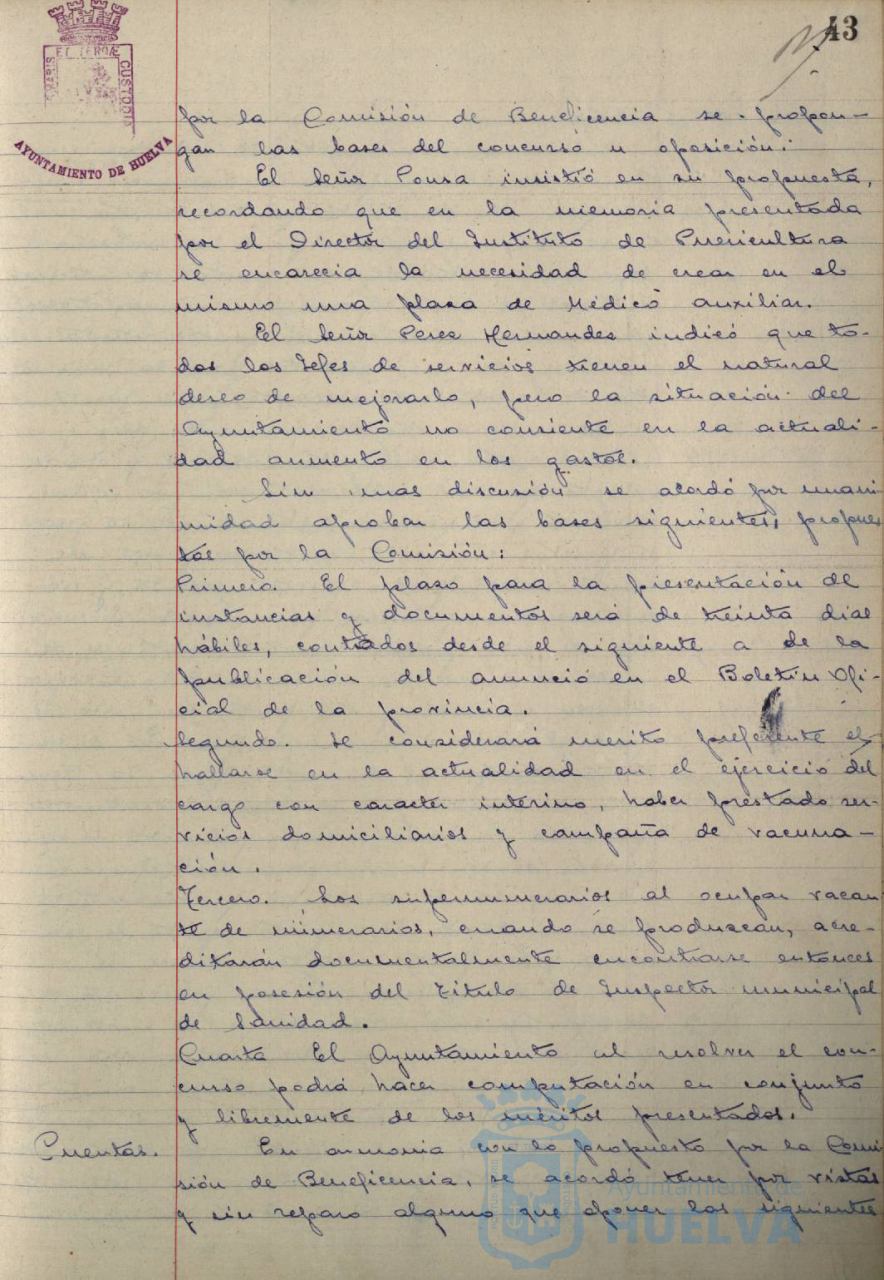 43
ET TERRÆ CUSTODIA
AYUNTAMIENTO DE HUELVA
por la Comisión de Beneficencia se propon-
gan las bases del concurso u oposición.
El Señor Ponza insistió en su propuesta,
recordando que en la memoria presentada
por el Director del Instituto de Puericultura
se encarecia la necesidad de crear en el
mismo una plaza de Médico auxiliar.
El Señor Perez Hernandez indicó que to-
dos los Jefes de servicios tienen el natural
deseo de mejorarlo, pero la situación del
Ayuntamiento no consiente en la actuali-
dad aumento en los gastos.
Sin mas discusión se acordó por unani
midad aprobar las bases siguientes, propues
tas por la Comisión:
Primero. El plazo para la presentación de
instancias y documentos será de treinta dias
hábiles, contados desde el siguiente a de la
publicación del anuncio en el Boletin Ofi-
cial de la provincia.
Segundo. Se considerará merito preferente el
hallarse en la actualidad en el ejercicio del
cargo con caracter interino, haber prestado ser-
vicios domiciliarios y campaña de vacuna-
ción.
Tercero. Los supernumerarios al ocupar vacan
te de númerarios, cuando se produzcan, acre-
ditarán documentalmente encontrarse entonces
en posesión del Titulo de Inspector municipal
de Sanidad.
Cuarta El Ayuntamiento al resolver el con-
curso podrá hacer computación en conjunto
y libremente de los méritos presentados.
Cuentas. En armonia con lo propuesto por la Comi
sión de Beneficencia, se acordó tener por vistas
y sin reparo alguno que oponer las siguientes
Ayuntamiento de
HUELVA